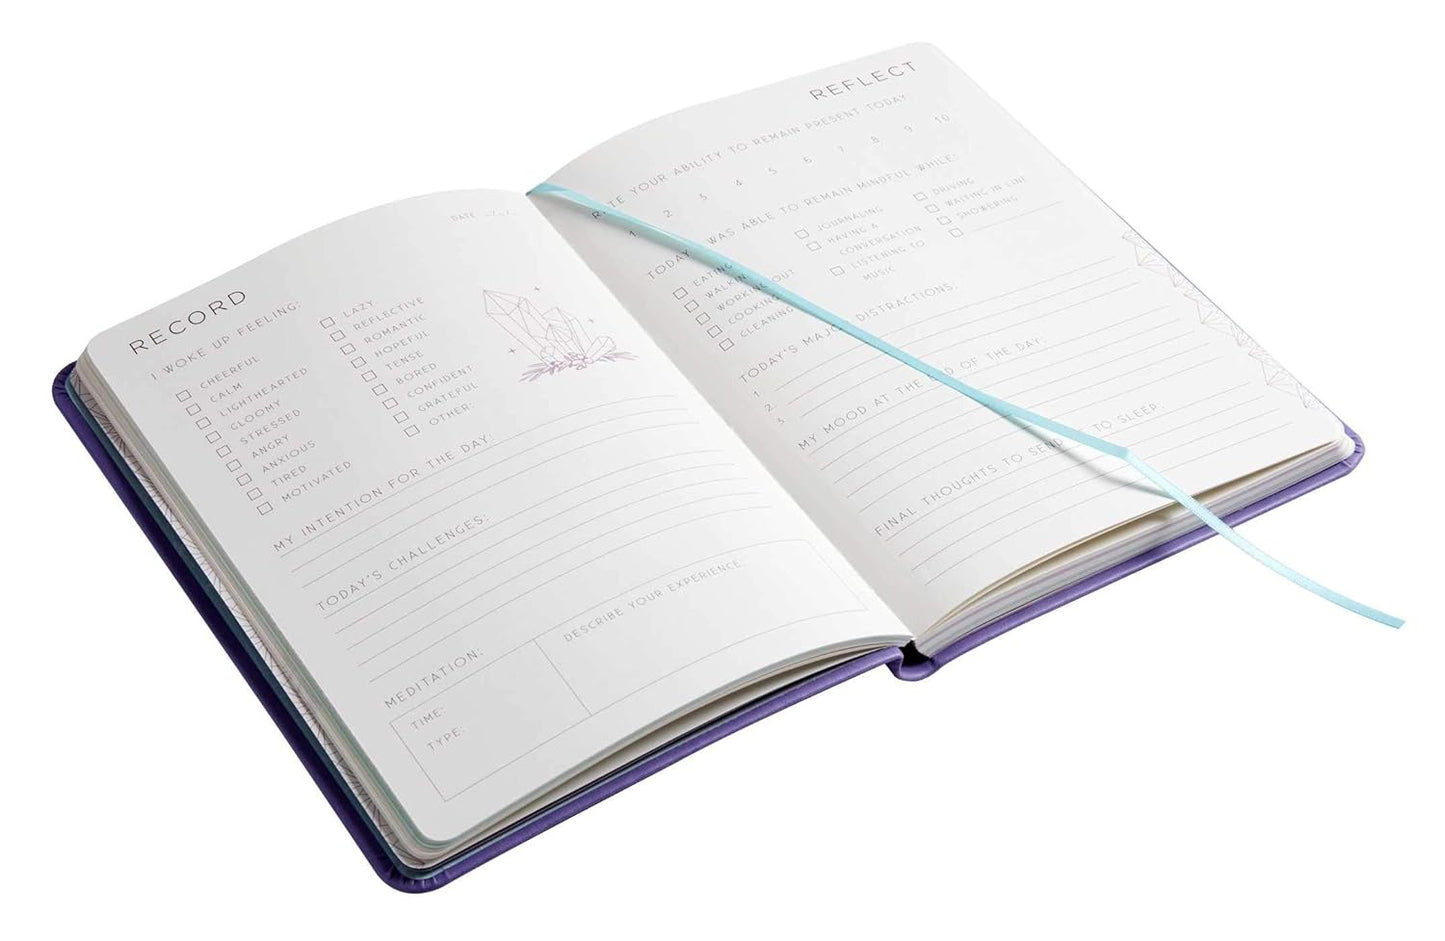 RECORD
DATE
I WOKE UP FEELING:
CHEERFUL
CALM
LIGHTHEARTED
GLOOMY
STRESSED
ANGRY
ANXIOUS
TIRED
MOTIVATED
LAZY
REFLECTIVE
ROMANTIC
HOPEFUL
TENSE
BORED
CONFIDENT
GRATEFUL
OTHER:
MY INTENTION FOR THE DAY:
TODAY'S CHALLENGES:
MEDITATION:
TIME:
TYPE:
DESCRIBE YOUR EXPERIENCE:
REFLECT
RATE YOUR ABILITY TO REMAIN PRESENT TODAY
1 2 3 4 5 6 7 8 9 10
TODAY WAS ABLE TO REMAIN MINDFUL WHILE:
EATING
WALKIN
WORKING OUT
COOKING
CLEANING
JOURNALING
HAVING A
CONVERSATION
LISTENING TO
MUSIC
DRIVING
WAITING IN LINE
SHOWERING
TODAY'S MAJOR DISTRACTIONS:
1.
2.
3.
MY MOOD AT THE END OF THE DAY:
FINAL THOUGHTS TO SEND TO SLEEP: